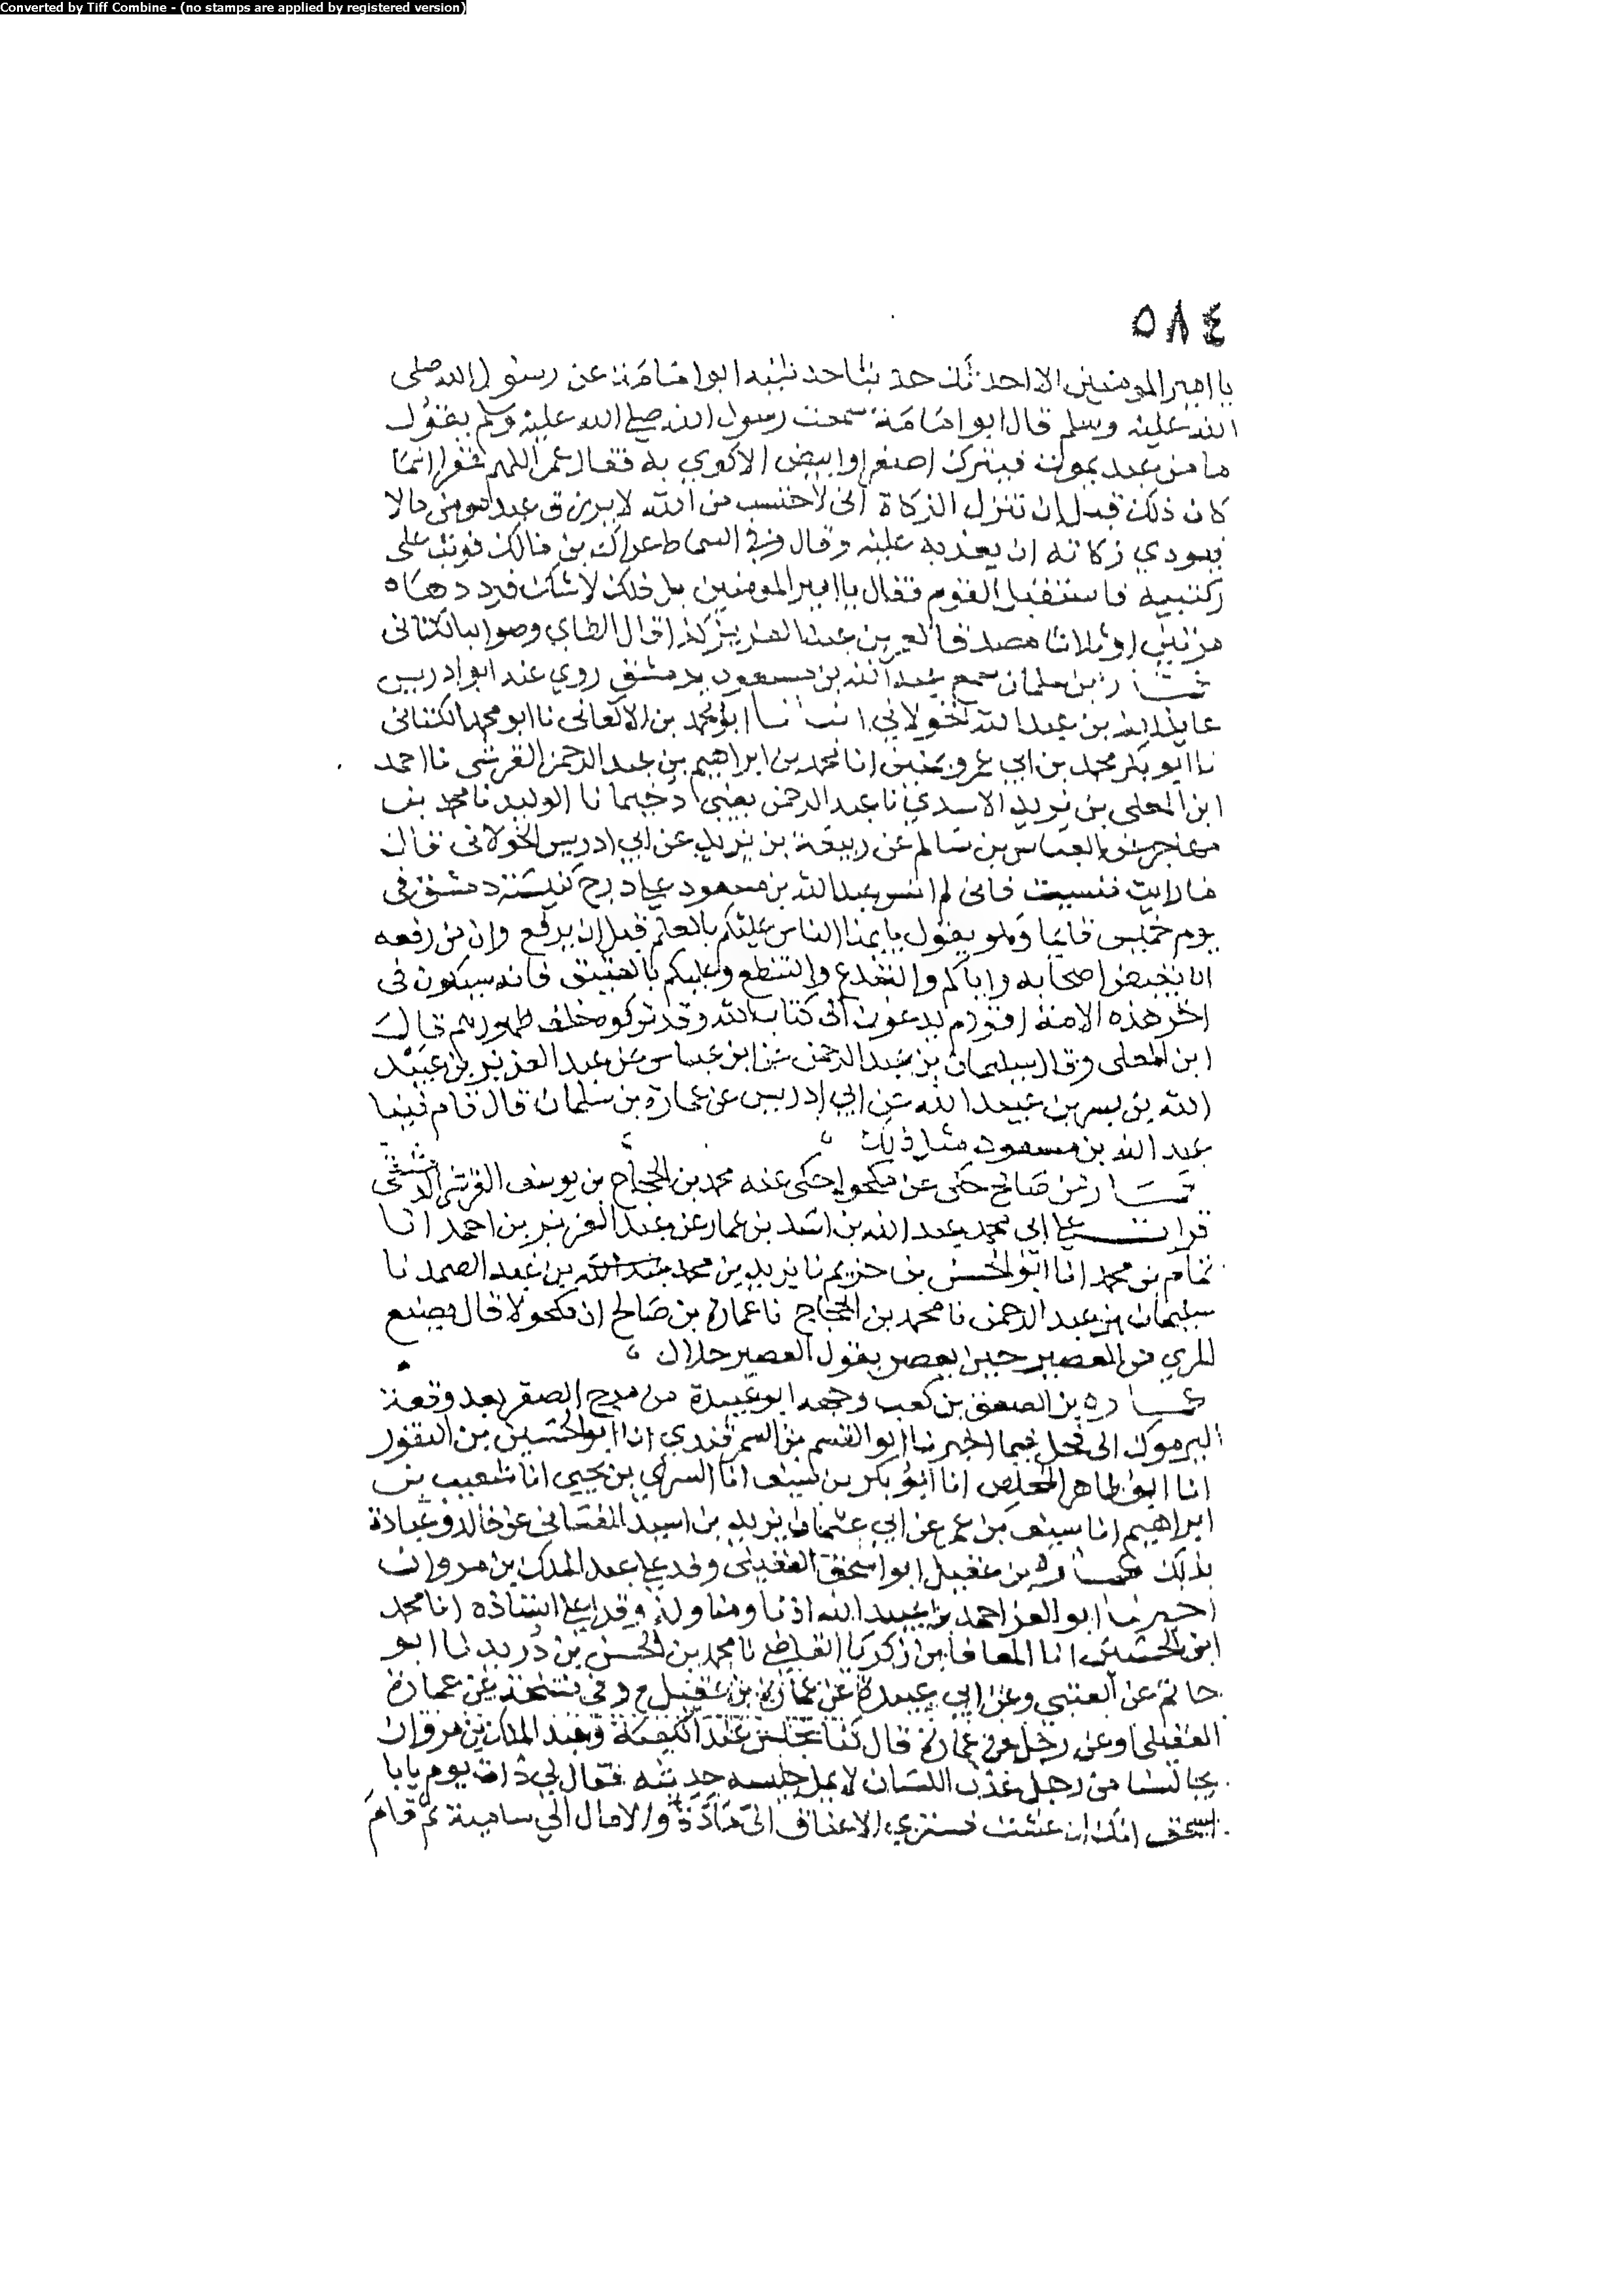 Converted by Tiff Combine - (no stamps are applied by registered version)
٥٨٤
يا امير المومنين الا احدثك حديثا حدثنيه ابو امامة عن رسول الله صلى
الله عليه وسلم قال ابو امامة سمعت رسول الله صلى الله عليه وسلم يقول
ما من عبد يموت فيترك اصفر او ابيض الا كوي به فقال عمر اللهم غفرا انما
كان ذلك قبل ان تنزل الزكاة اني لاحتسب من الله لا يرزق عبد مومن مالا
فيودي زكاته ان يعذبه عليه وقال وفي السماط عراك بن مالك فوثب على
ركبتيه فاستقبل القوم فقال يا امير المومنين بل ذلك لا شك فيه رددها
مرتين او ثلاثا فصدقه عمر بن عبد العزيز كذا قال الطاي وصوابه الكناني
عمارة بن سلمان سمع عبد الله بن مسعود بدمشق روى عنه ابو ادريس
عايذ الله بن عبد الله الخولاني انبانا ابو محمد بن الاكفاني نا ابو محمد الكتاني
نا ابو بكر محمد بن ابي عمرو انا محمد بن ابراهيم بن عبد الرحمن القرشي نا احمد
ابن المعلى بن يزيد الاسدي نا عبد الرحمن يعني دحيما نا الوليد نا محمد بن
مهاجر عن العباس بن سالم عن ربيعة بن يزيد عن ابي ادريس الخولاني قال
ما رايت فنسيت فاني لم انس عبد الله بن مسعود على درج كنيسة دمشق في
يوم خميس قايما وهو يقول يا ايها الناس عليكم بالعلم قبل ان يرفع وان من رفعه
ان يقبض اصحابه واياكم والتبدع والتنطع وعليكم بالعتيق فانه سيكون في
اخر هذه الامة اقوام يدعون الى كتاب الله وقد تركوه خلف ظهورهم قال
ابن المعلى وقال سليمان بن عبد الرحمن عن ابن عباس عن عبد العزيز بن عبيد
الله بن بسر بن عبيد الله عن ابي ادريس عن عمارة بن سلمان قال قام فينا
عبد الله بن مسعود مثل ذلك
عمارة بن صالح حكى عن مكحول حكى عنه محمد بن الحجاج بن يوسف القرشي الدمشقي
قرات على ابي محمد عبد الله بن اسد بن عمار عن عبد العزيز بن احمد انا
تمام بن محمد انا ابو الحسن بن حزيم نا يزيد بن محمد بن عبد الصمد نا
سليمان بن عبد الرحمن نا محمد بن الحجاج نا عمارة بن صالح ان مكحولا قال يصنع
المري من العصير حين يعصر يقول العصير حلال
عمارة بن الصعق بن كعب وجهه ابو عبيدة من مرج الصفر بعد وقعة
اليرموك الى فحل فيما اخبرنا ابو القسم بن السمرقندي انا ابو الحسين بن النقور
انا ابو طاهر المخلص انا ابو بكر بن سيف انا السري بن يحيى انا شعيب بن
ابراهيم انا سيف بن عمر عن ابي عثمان يزيد بن اسيد الغساني عن خالد وعبادة
بذلك عمارة بن عقيل ابو اسحق العقيلي وفد على عبد الملك بن مروان
اخبرنا ابو العز احمد بن عبيد الله اذنا ومناولة وقرا علي اسناده انا محمد
ابن الحسين انا المعافا بن زكريا القاضي نا محمد بن الحسن بن دريد نا ابو
حاتم عن العتبي وعن ابي عبيدة عن عمارة بن عقيل ح وفي نسخة عن عمارة
العقيلي وعن رجل عن عمارة قال كنا نجلس عند الكعبة وعبد الملك بن مروان
يجالسنا من رجل عذب اللسان لا يمل جليسه حديثه فقال لي ذات يوم يابا
اسحق انك ان عشت فسترى الاعناق الي مادة والامال الي سامية ثم قام